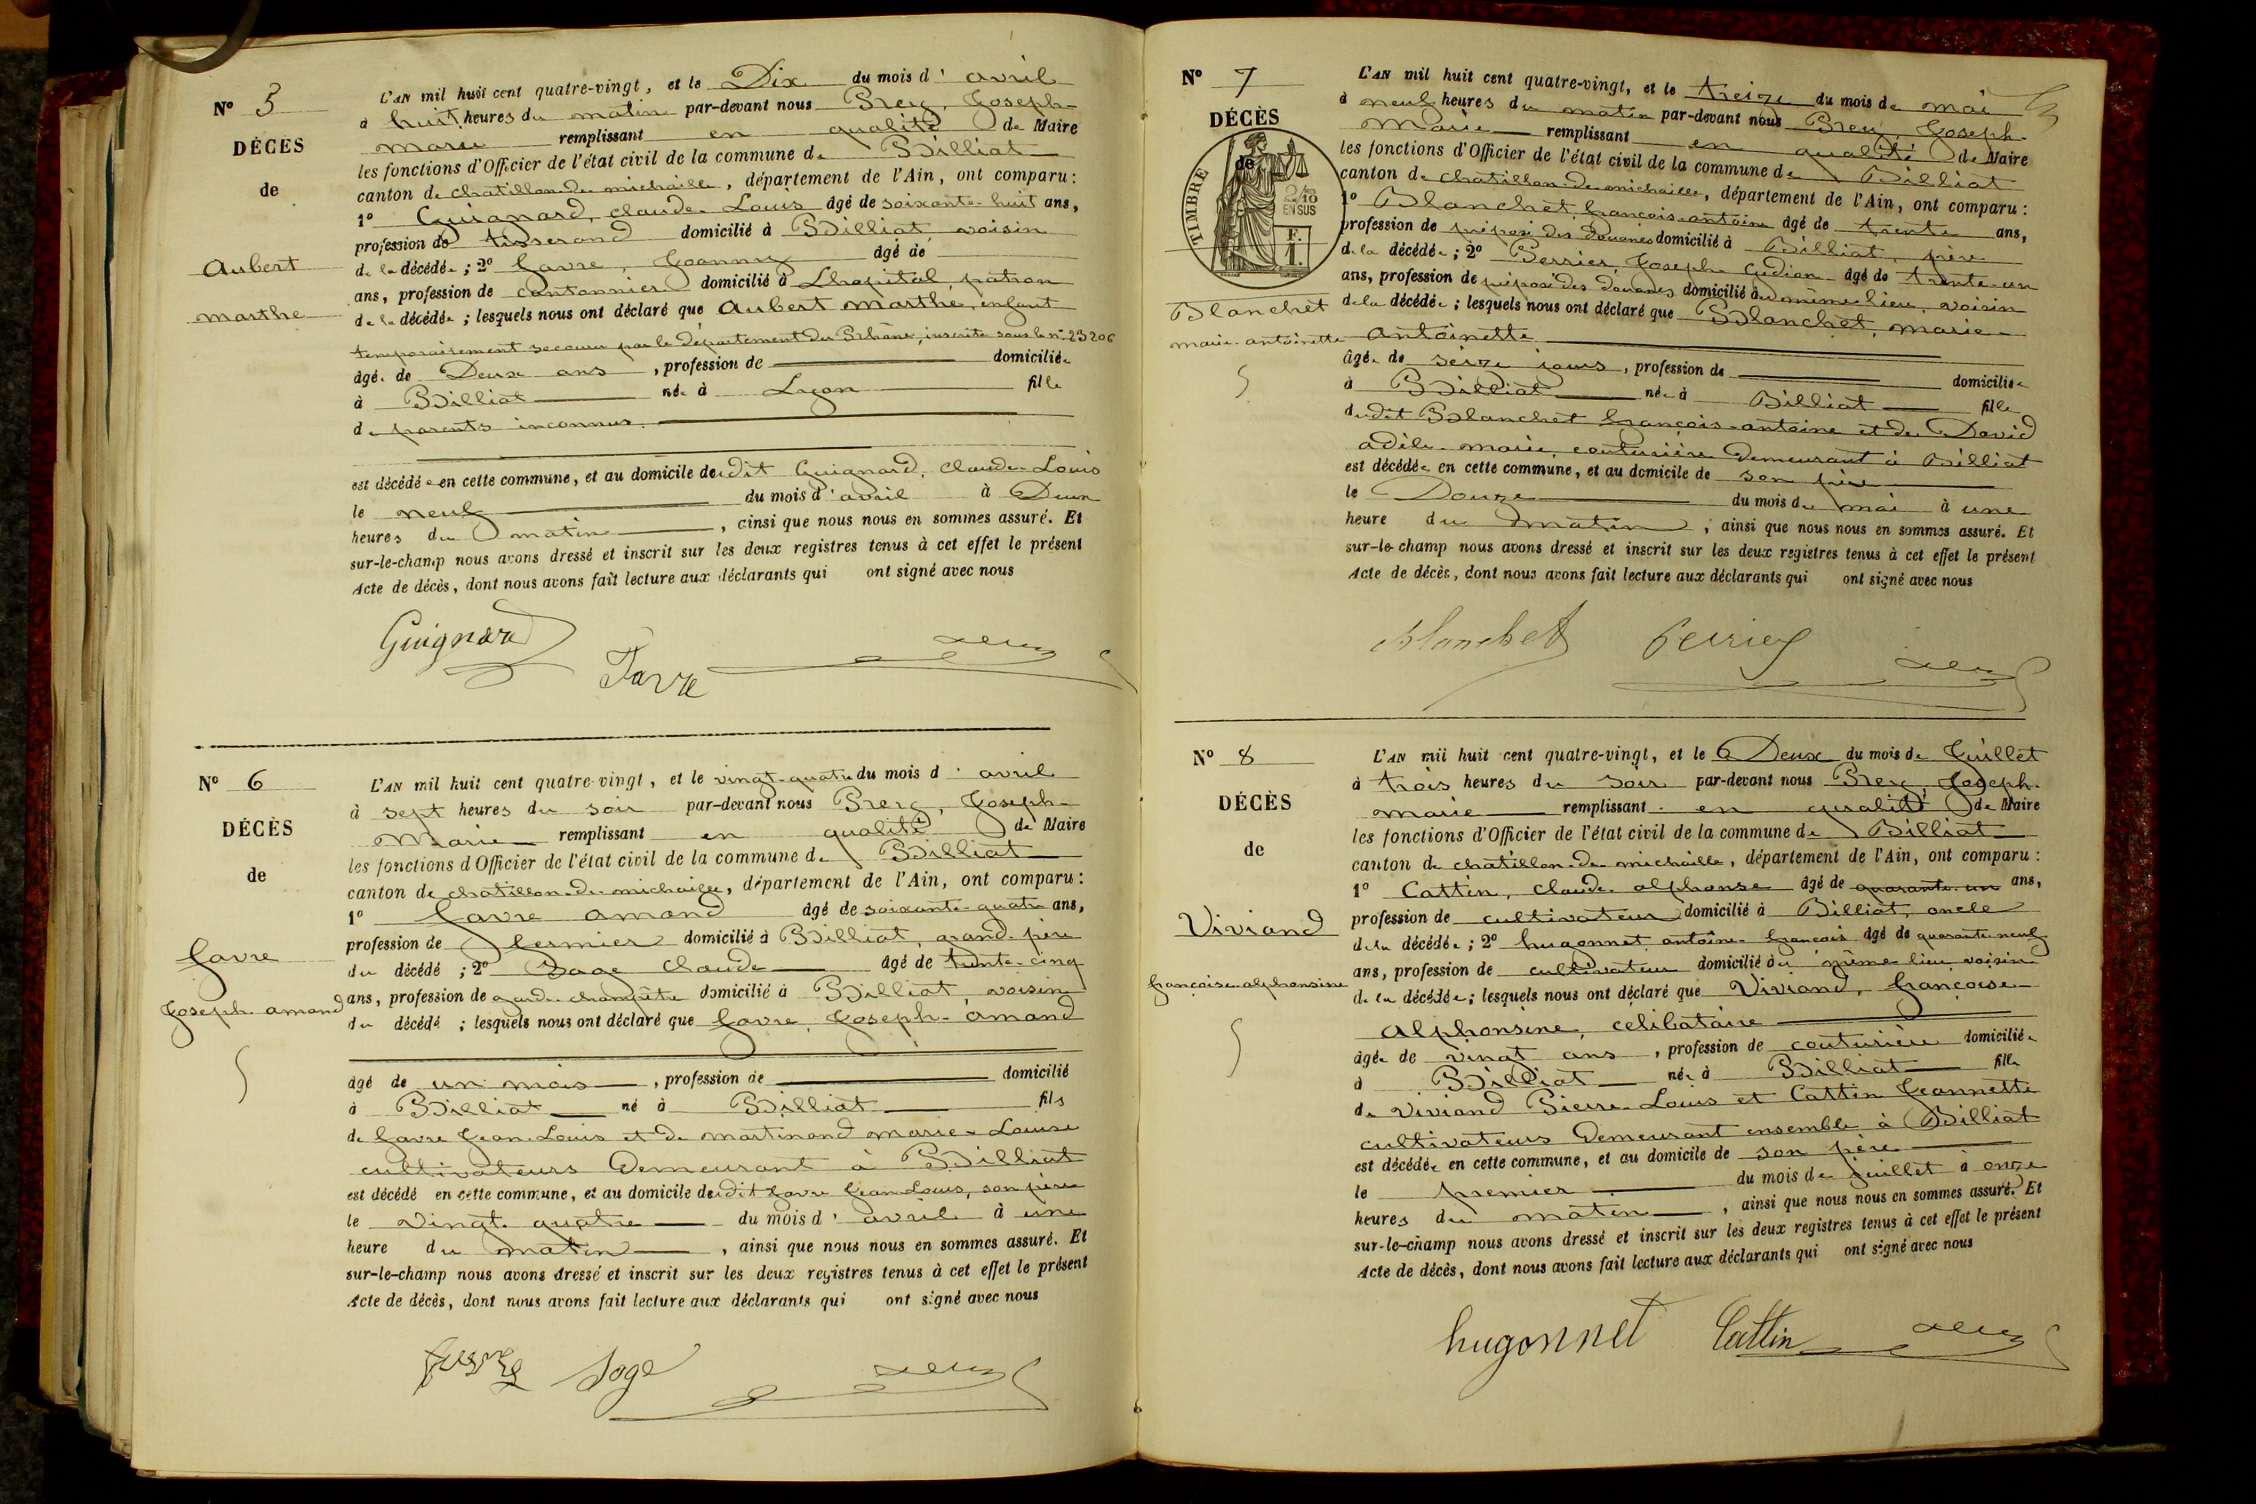 N° 5
DÉCÈS
de
Aubert
Marthe
L'AN mil huit cent quatre-vingt, et le Dix du mois d'avril
à huit heures du matin par-devant nous Brey, Joseph-
Marie remplissant en qualité de Maire
les fonctions d'Officier de l'état civil de la commune de Billiat
canton de chatillon-de-michaille, département de l'Ain, ont comparu :
1° Guignard, claude-Louis âgé de soixante-huit ans,
profession de tisserand domicilié à Billiat voisin
de la décédée ; 2° favre, Joanny âgé de
ans, profession de cantonnier domicilié à Lhopital, patron
de la décédée ; lesquels nous ont déclaré que Aubert Marthe, enfant
temporairement secouru par le Département du Rhône, inscrite sous le n° 23206
âgée de Deux ans, profession de domiciliée
à Billiat née à Lyon fille
de parents inconnus.
est décédée en cette commune, et au domicile dudit Guignard, claude-Louis
le neuf du mois d'avril à Deux
heures du matin, ainsi que nous nous en sommes assuré. Et
sur-le-champ nous avons dressé et inscrit sur les deux registres tenus à cet effet le présent
Acte de décès, dont nous avons fait lecture aux déclarants qui ont signé avec nous
Guignard
Favre
N° 6
DÉCÈS
de
favre
Joseph-amand
L'AN mil huit cent quatre-vingt, et le vingt-quatre du mois d'avril
à sept heures du soir par-devant nous Brey, Joseph-
Marie remplissant en qualité de Maire
les fonctions d'Officier de l'état civil de la commune de Billiat
canton de chatillon-de-michaille, département de l'Ain, ont comparu :
1° favre amand âgé de soixante-quatre ans,
profession de fermier domicilié à Billiat, grand-père
du décédé ; 2° Sage claude âgé de trente-cinq
ans, profession de garde-champêtre domicilié à Billiat, voisin
du décédé ; lesquels nous ont déclaré que favre, Joseph-amand
âgé de un mois, profession de domicilié
à Billiat né à Billiat fils
de favre Jean-Louis et de martinand marie-Louise
cultivateurs Demeurant à Billiat
est décédé en cette commune, et au domicile dudit favre Jean-Louis, son père
le vingt-quatre du mois d'avril à une
heure du matin, ainsi que nous nous en sommes assuré. Et
sur-le-champ nous avons dressé et inscrit sur les deux registres tenus à cet effet le présent
Acte de décès, dont nous avons fait lecture aux déclarants qui ont signé avec nous
Sage
N° 7
DÉCÈS
de
TIMBRE
2/10
EN SUS
F.
1.
Blanchet
marie-antoinette
L'AN mil huit cent quatre-vingt, et le treize du mois de mai
à neuf heures du matin par-devant nous Brey, Joseph-
Marie remplissant en qualité de Maire
les fonctions d'Officier de l'état civil de la commune de Billiat
canton de chatillon-de-michaille, département de l'Ain, ont comparu :
1° Blanchet, françois-antoine âgé de trente ans,
profession de préposé des Douanes domicilié à Billiat, père
de la décédée ; 2° Perrier, Joseph-Gédion âgé de trente-un
ans, profession de préposé des douanes domicilié au même lieu, voisin
de la décédée ; lesquels nous ont déclaré que Blanchet, marie-
antoinette
âgée de seize jours, profession de domiciliée
à Billiat née à Billiat fille
dudit Blanchet françois-antoine et de David
adèle-marie, couturière Demeurant à Billiat
est décédée en cette commune, et au domicile de son père
le Douze du mois de mai à une
heure du matin, ainsi que nous nous en sommes assuré. Et
sur-le-champ nous avons dressé et inscrit sur les deux registres tenus à cet effet le présent
Acte de décès, dont nous avons fait lecture aux déclarants qui ont signé avec nous
Blanchet Perrier
N° 8
DÉCÈS
de
Viviand
françoise-alphonsine
L'AN mil huit cent quatre-vingt, et le Deux du mois de Juillet
à trois heures du soir par-devant nous Brey, Joseph-
marie remplissant en qualité de Maire
les fonctions d'Officier de l'état civil de la commune de Billiat
canton de chatillon-de-michaille, département de l'Ain, ont comparu :
1° Cattin, claude-alphonse âgé de quarante-un ans,
profession de cultivateur domicilié à Billiat, oncle
de la décédée ; 2° hugonnet antoine-françois âgé de quarante-neuf
ans, profession de cultivateur domicilié au même lieu voisin
de la décédée ; lesquels nous ont déclaré que Viviand, françoise-
Alphonsine, célibataire
âgée de vingt ans, profession de couturière domiciliée
à Billiat née à Billiat fille
de Viviand Pierre-Louis et Cattin Jeannette
cultivateurs Demeurant ensemble à Billiat
est décédée en cette commune, et au domicile de son père
le premier du mois de juillet à onze
heures du matin, ainsi que nous nous en sommes assuré. Et
sur-le-champ nous avons dressé et inscrit sur les deux registres tenus à cet effet le présent
Acte de décès, dont nous avons fait lecture aux déclarants qui ont signé avec nous
hugonnet Cattin